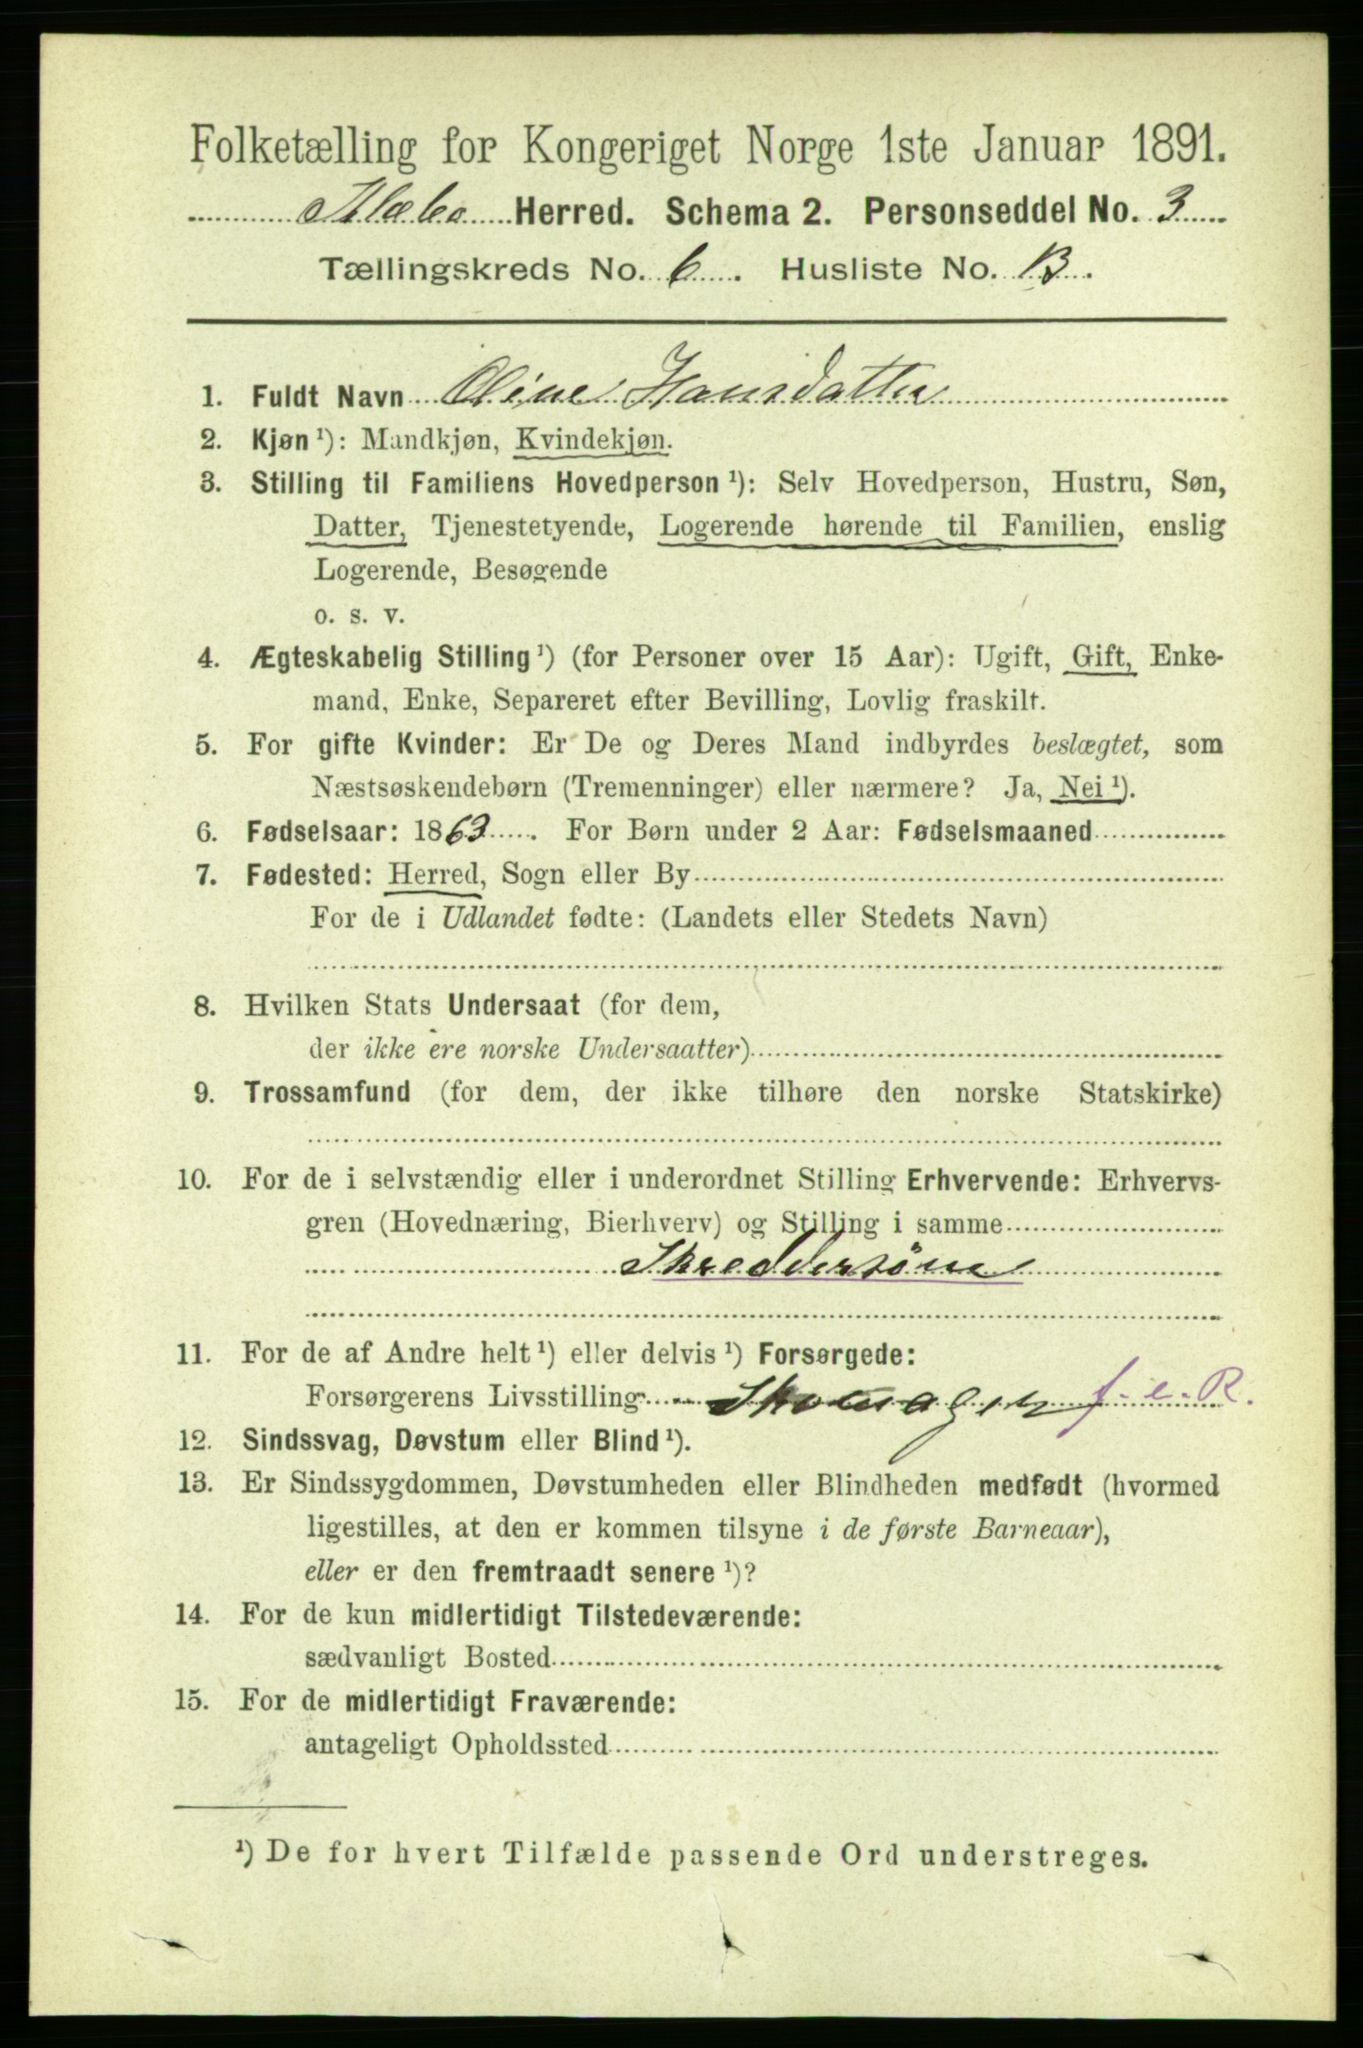 Folketælling for Kongeriget Norge 1ste Januar 1891.
Klæbo Herred. Schema 2. Personseddel No. 3
Tællingskreds No. 6. Husliste No. 13.
1. Fuldt Navn Oline Hansdatter
2. Kjøn ¹): Mandkjøn, Kvindekjøn.
3. Stilling til Familiens Hovedperson ¹): Selv Hovedperson, Hustru, Søn,
Datter, Tjenestetyende, Logerende hørende til Familien, enslig
Logerende, Besøgende
o. s. v.
4. Ægteskabelig Stilling ¹) (for Personer over 15 Aar): Ugift, Gift, Enke-
mand, Enke, Separeret efter Bevilling, Lovlig fraskilt.
5. For gifte Kvinder: Er De og Deres Mand indbyrdes beslægtet, som
Næstsøskendebørn (Tremenninger) eller nærmere? Ja, Nei ¹).
6. Fødselsaar: 1863. For Børn under 2 Aar: Fødselsmaaned
7. Fødested: Herred, Sogn eller By
For de i Udlandet fødte: (Landets eller Stedets Navn)
8. Hvilken Stats Undersaat (for dem,
der ikke ere norske Undersaatter)
9. Trossamfund (for dem, der ikke tilhøre den norske Statskirke)
10. For de i selvstændig eller i underordnet Stilling Erhvervende: Erhvervs-
gren (Hovednæring, Bierhverv) og Stilling i samme
Skreddersöm
11. For de af Andre helt ¹) eller delvis ¹) Forsørgede:
Forsørgerens Livsstilling Skomager f. e. R.
12. Sindssvag, Døvstum eller Blind ¹).
13. Er Sindssygdommen, Døvstumheden eller Blindheden medfødt (hvormed
ligestilles, at den er kommen tilsyne i de første Barneaar),
eller er den fremtraadt senere ¹)?
14. For de kun midlertidigt Tilstedeværende:
sædvanligt Bosted
15. For de midlertidigt Fraværende:
antageligt Opholdssted
¹) De for hvert Tilfælde passende Ord understreges.